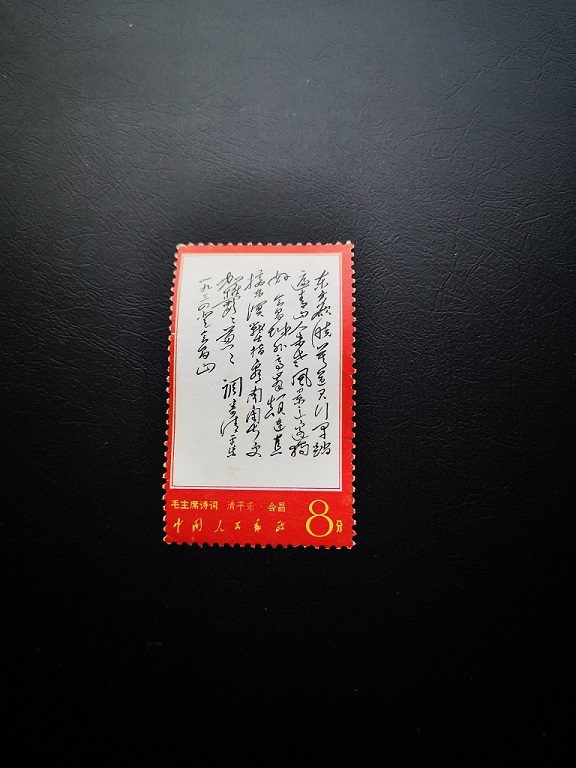 东方欲晓莫道君行早踏
遍青山人未老風景这边独
好 会昌城外高峰顛连直
接东溟戰士指看南粤更
加郁々葱々 調寄清平乐
一九三四登会昌山
毛主席诗词 清平乐·会昌
中国人民邮政 8分